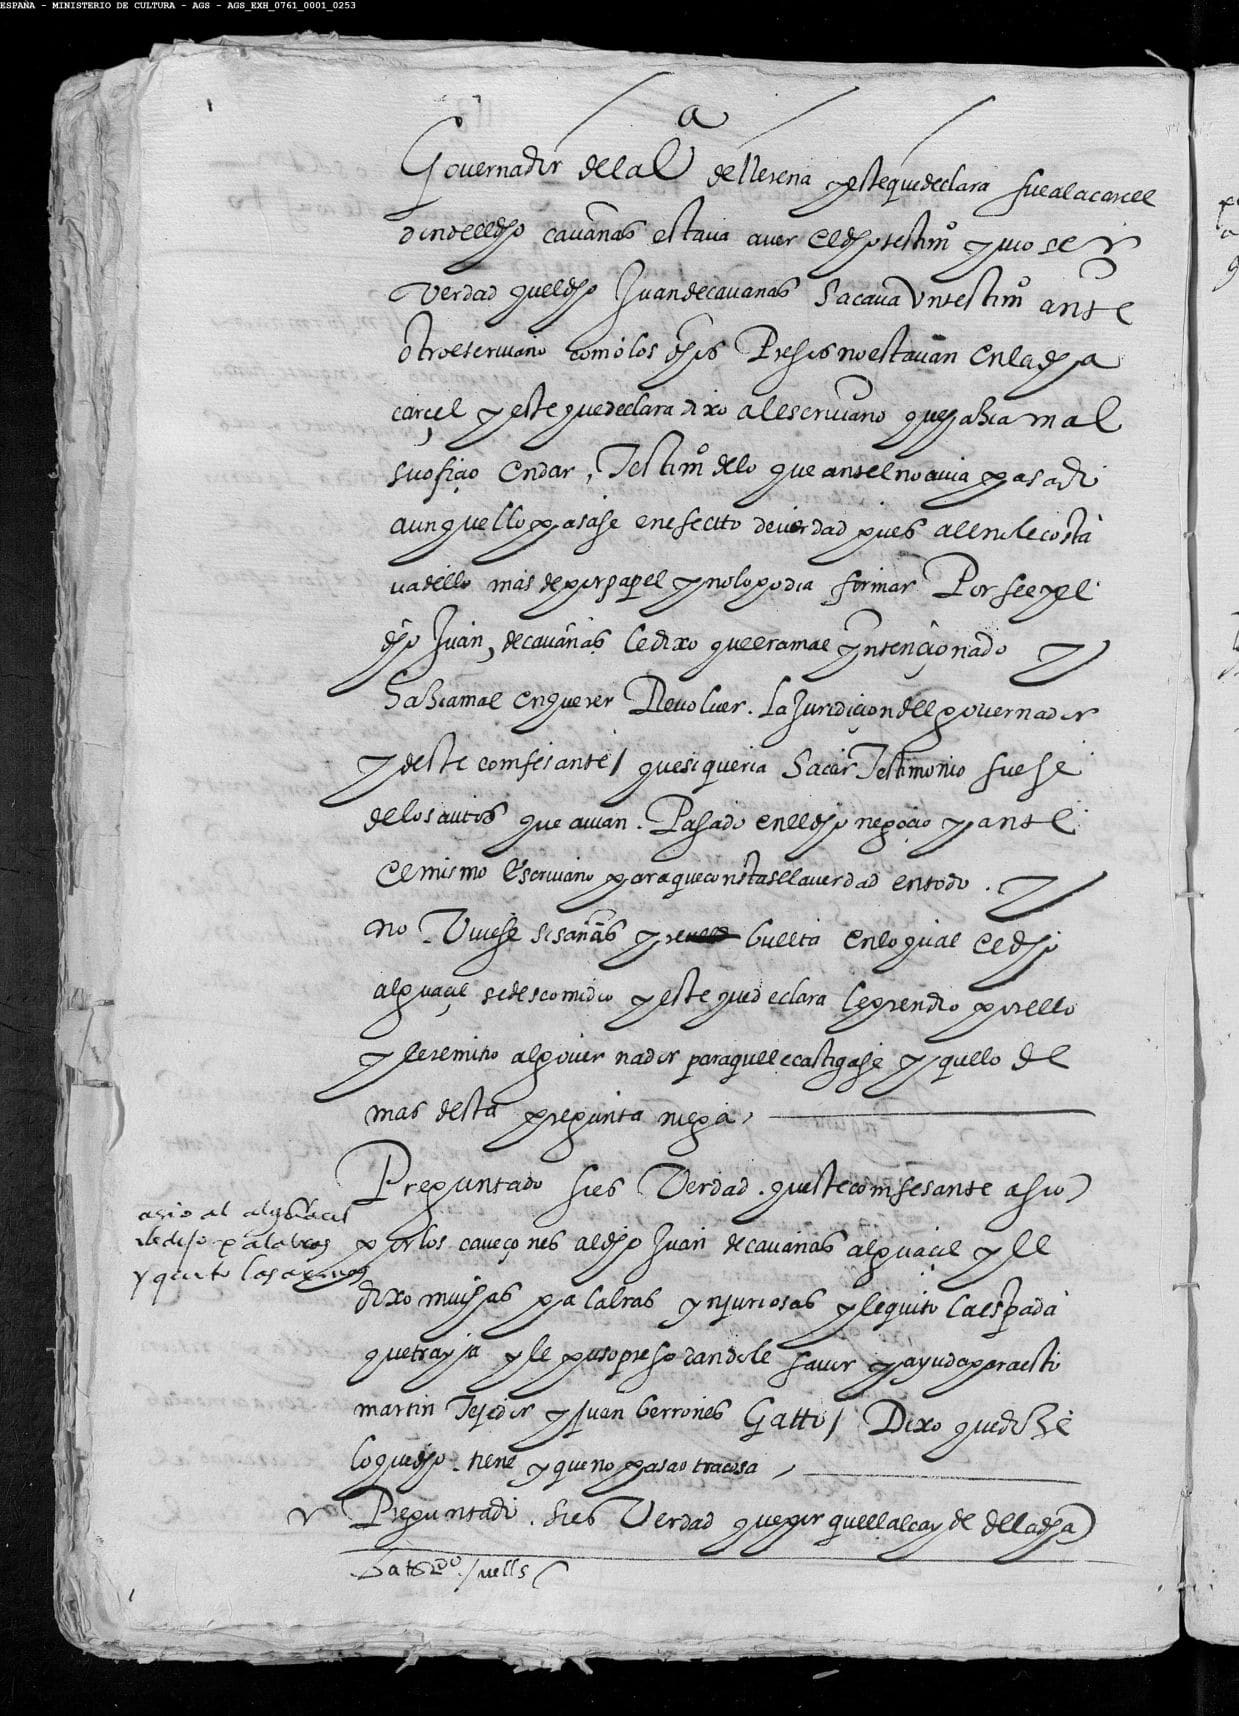 ESPAÑA - MINISTERIO DE CULTURA - AGS - AGS_EXH_0761_0001_0253
Governador de la Va de llerena y este que declara fue a la carcel
donde el dho cavañas estava a ver el dho testimo y vio ser
Verdad quel dho Juan de cavañas sacava Un testimo ante
otro escrivano como los dhos Presos no estavan en la dha
carçel y este que declara dixo al escrivano que haçia mal
su ofiçio en dar Testimo de lo que ante el no avia pasado
aunque llo pasase en efecto de verdad pues a el no le costa
va dello mas de por papel y no lo podia firmar Por fee y el
dho Juan de cavañas le dixo que era mal yntençionado y
haçia mal en querer Revolver la Juridiçion del governador
y deste comfesante / que si queria sacar Testimonio fuese
de los autos que avian Pasado en el dho negoçio y ante
el mismo Escrivano para que constase la verdad en todo y
no Uviese sisañas y buelta en lo qual el dho
alguaçil se descomidio y este que declara le prendio por ello
y le remitio al governador para que le castigase y que lo de
mas desta pregunta niega
Preguntado si es Verdad queste comfesante asio
asio al alguacil
le dijo palabras
y quito las armas
por los caveçones al dho Juan de cavañas alguaçil y le
dixo muchas palabras ynjuriosas y le quito la espada
que trayja y le puso preso dandole favor y ayuda para esto
martin Tejedor y Juan berrones Gatto / Dixo que diçe
lo que dho tiene y que no paso otra cosa
Preguntado si es Verdad que porque el alcayde de la dha